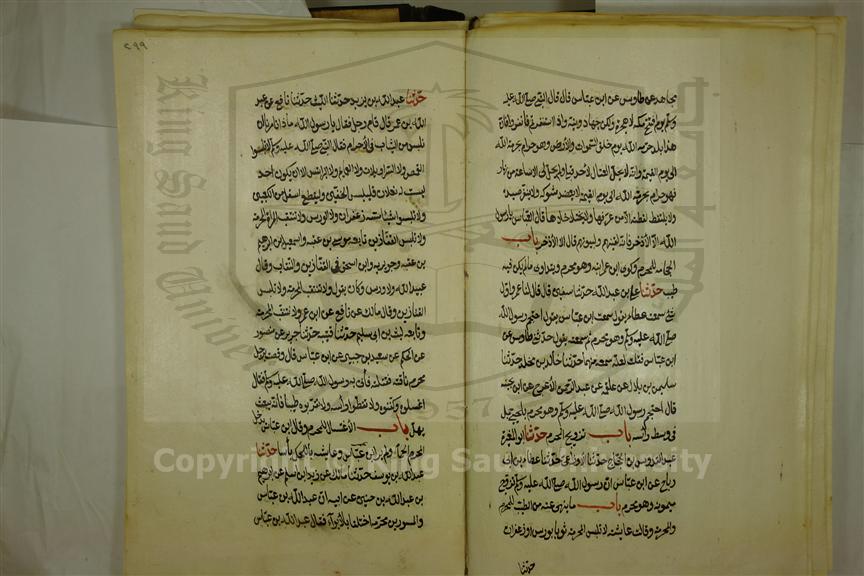 مجاهد عن طاوس عن ابن عباس قال قال النبي صلى الله عليه
وسلم يوم فتح مكة لا هجرة ولكن جهاد ونية واذا استنفرتم فانفروا فان
هذا بلد حرمه الله يوم خلق السموات والارض وهو حرام بحرمة الله
الى يوم القيمة وانه لا يحل القتال لاحد قبلي ولم يحل لي الا ساعة من نهار
فهو حرام بحرمة الله الى يوم القيمة لا يعضد شوكه ولا ينفر صيده
ولا يلتقط لقطته الا من عرفها ولا يختلى خلاها قال العباس يا رسول
الله الا الاذخر فانه لقينهم ولبيوتهم قال الا الاذخر باب
الحجامة للمحرم وكوى ابن عمر ابنه وهو محرم ويتداوى ما لم يكن فيه
طيب حدثنا علي بن عبد الله حدثنا سفين قال قال لنا عمرو اول
شئ سمعت عطاء يقول سمعت ابن عباس يقول احتجم رسول الله
صلى الله عليه وسلم وهو محرم ثم سمعته يقول حدثني طاوس عن
ابن عباس فقلت لعله سمعه منهما حدثنا خالد بن مخلد حدثنا
سليمن بن بلال عن علقمة عن عبد الرحمن الاعرج عن ابن بحينة
قال احتجم رسول الله صلى الله عليه وسلم وهو محرم بلحي جمل
في وسط رأسه باب تزويج المحرم حدثنا ابو المغيرة
عبد القدوس بن الحجاج حدثنا الاوزاعي حدثنا عطاء بن ابي
رباح عن ابن عباس ان رسول الله صلى الله عليه وسلم تزوج
ميمونة وهو محرم باب ما ينهى عنه من الطيب للمحرم
والمحرمة وقالت عايشة لا تلبس المحرمة ثوبا بورس او زعفران
حدثنا
٢٩٩
حدثنا عبد الله بن يزيد حدثنا الليث حدثنا نافع عن عبد
الله بن عمر قال قام رجل فقال يا رسول الله ماذا تامرنا ان
نلبس من الثياب في الاحرام فقال النبي صلى الله عليه وسلم لا تلبسوا
القمص ولا السراويلات ولا العمايم ولا البرانس الا ان يكون احد
ليست له نعلان فليلبس الخفين وليقطع اسفل من الكعبين
ولا تلبسوا شيئا مسه زعفران ولا الورس ولا تنتقب المراة المحرمة
ولا تلبس القفازين تابعه موسى بن عقبة واسمعيل بن ابرهيم
بن عقبة وجويرية وابن اسحق في القفازين والنقاب وقال
عبيد الله ولا ورس وكان يقول ولا تنتقب المحرمة ولا تلبس
القفازين وقال مالك عن نافع عن ابن عمر ولا تنتقب المحرمة
وتابعه ليث بن ابي سليم حدثنا قتيبة حدثنا جرير عن منصور
عن الحكم عن سعيد بن جبير عن ابن عباس قال وقصت برجل
محرم ناقته فقتلته فأتي به رسول الله صلى الله عليه وسلم فقال
اغسلوه وكفنوه ولا تغطوا راسه ولا تقربوه طيبا فانه يبعث
يهل باب الاغتسال للمحرم وقال ابن عباس يدخل
المحرم الحمام ولم ير ابن عمر وعايشة بالحك بأسا حدثنا
عبد الله بن يوسف حدثنا مالك عن زيد بن اسلم عن ابرهيم
بن عبد الله بن حنين عن ابيه ان عبد الله بن عباس
والمسور بن مخرمة اختلفا بالابواء فقال عبد الله بن عباس
King Saud University
1957
Copyright © King Saud University